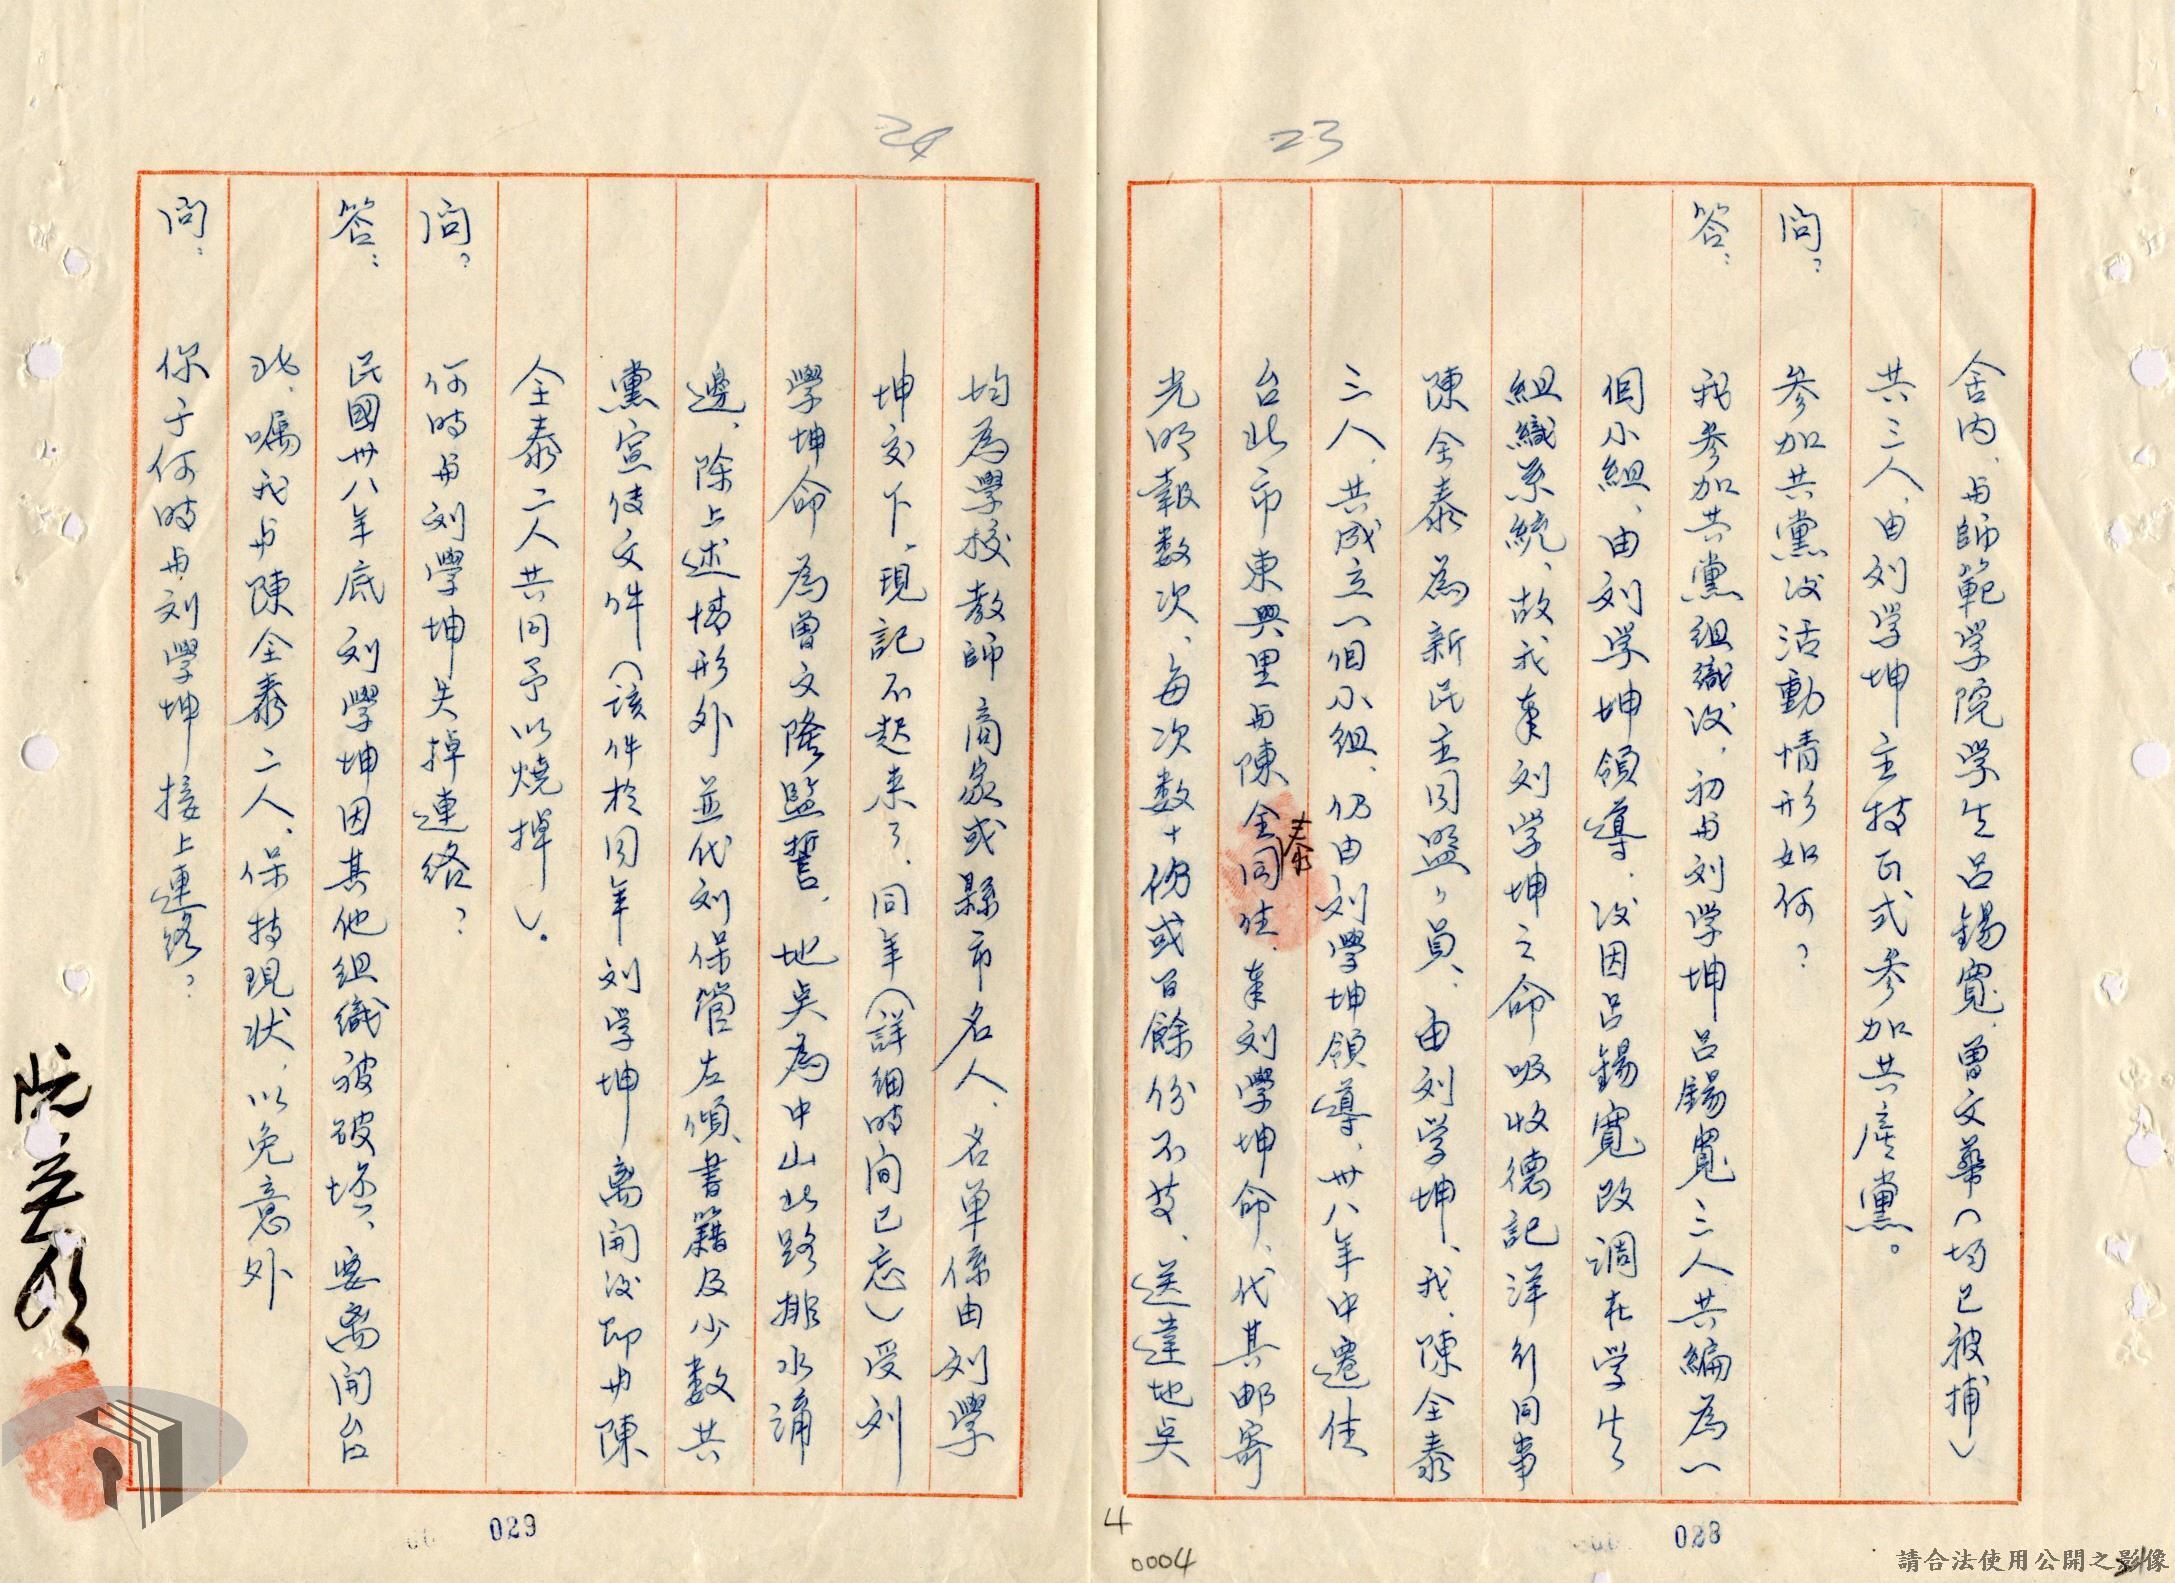 23
舍内、与師範学院学生呂錫寬、曾文華（均已被捕）
共三人、由刘学坤主持正式参加共產黨。
問：参加共黨後活動情形如何？
答：我参加共黨組織後，初与刘学坤呂錫寬三人共編為一
個小組、由刘学坤領導，後因呂錫寬改調在学生
組織系統、故我奉刘学坤之命吸收德記洋行同事
陳全泰為新民主同盟盟員、由刘学坤、我、陳全泰
三人、共成立一個小組、仍由刘學坤領導、卅八年中遷住
台北市東興里与陳全泰同住、奉刘學坤命、代其邮寄
光明報数次、每次数十份或百餘份不等、送達地点
028
4
0004
24
均為學校教師商家或縣市名人、名單係由刘學
坤交下、現記不起来了、同年（詳細時间已忘）受刘
學坤命為曾文隆監誓、地点為中山北路排水溝
邊、除上述情形外並代刘保管左傾書籍及少数共
黨宣传文件（該件於同年刘学坤离開後即由陳
全泰二人共同予以燒掉）。
問：何時与刘學坤失掉連絡？
答：民國卅八年底刘學坤因其他組織被破坏、要离開台
北、囑我与陳全泰二人、保持現状、以免意外
問：你于何時与刘學坤接上連絡？
029
請合法使用公開之影像